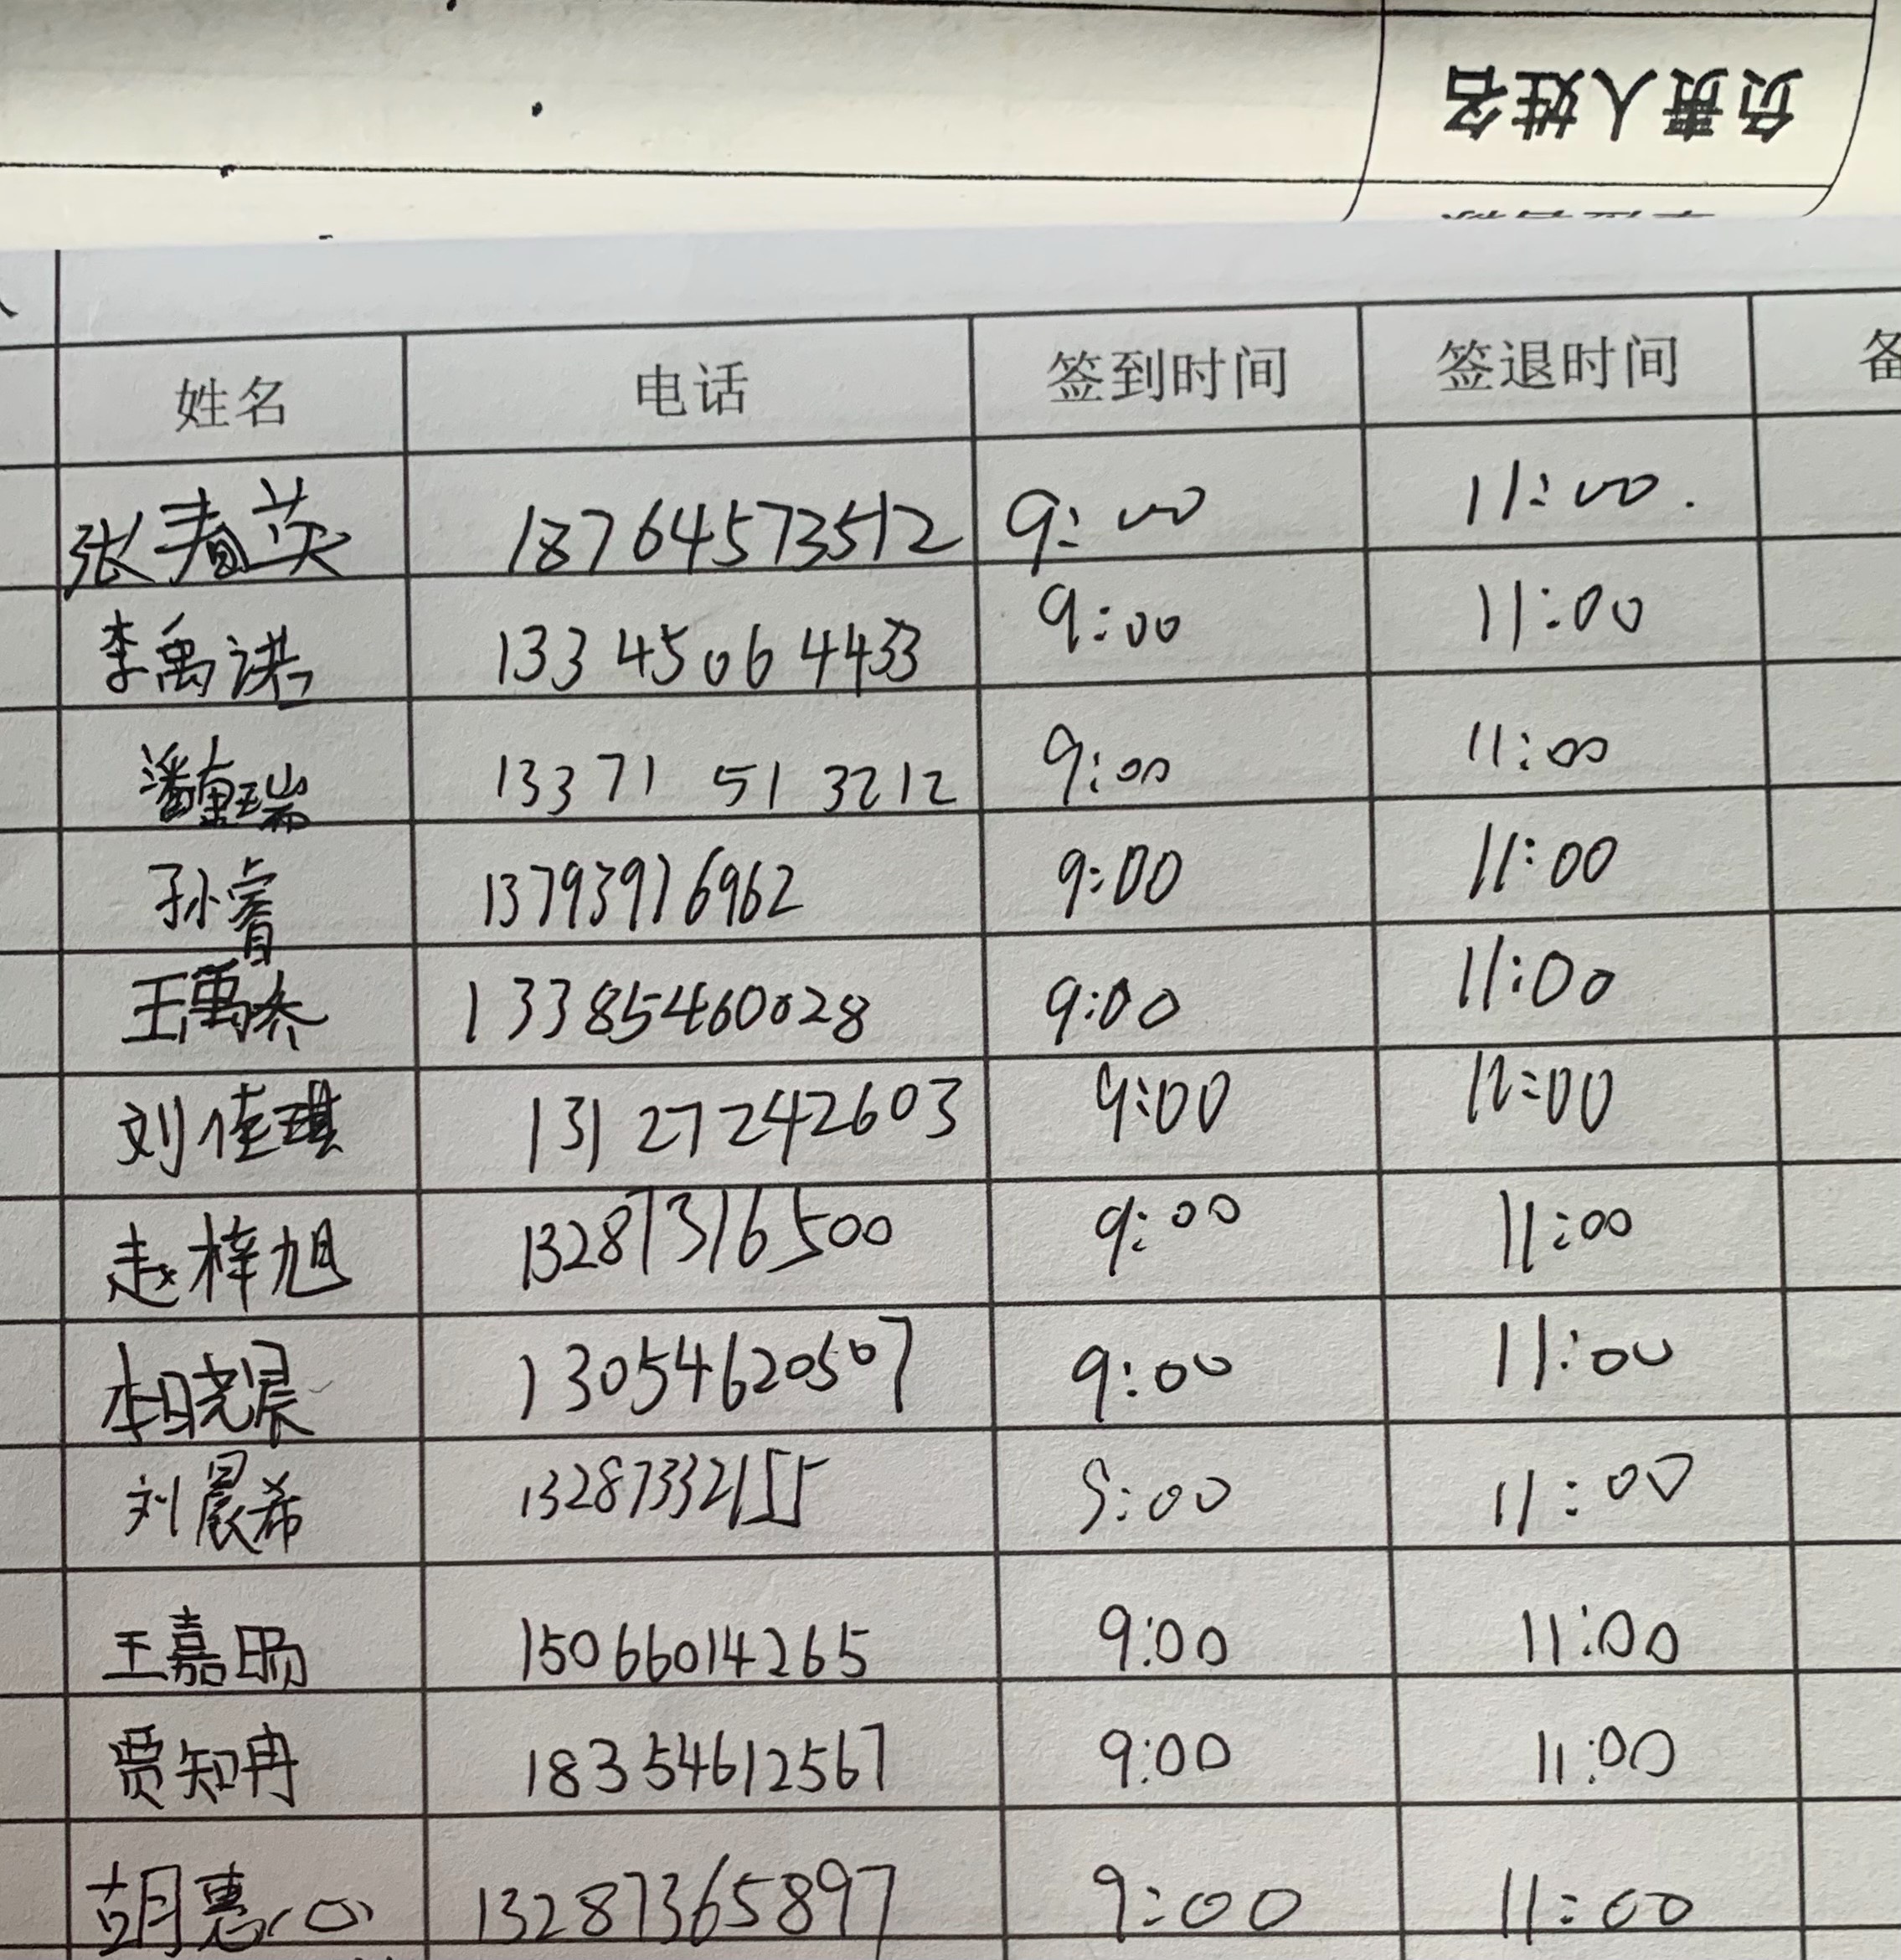 负责人姓名
姓名 电话 签到时间 签退时间 备
张春英 18764573512 9:00 11:00.
李禹诺 13345064433 9:00 11:00
潘 瑞 13371 51 3212 9:00 11:00
孙睿 13793916962 9:00 11:00
王禹乔 13385460028 9:00 11:00
刘佳琪 13127242603 9:00 11:00
赵梓旭 13287316500 9:00 11:00
李晓晨 13054620507 9:00 11:00
刘晨希 13287332155 9:00 11:00
王嘉旸 15066014265 9:00 11:00
贾知冉 18354612567 9:00 11:00
胡惠心 13287365897 9:00 11:00